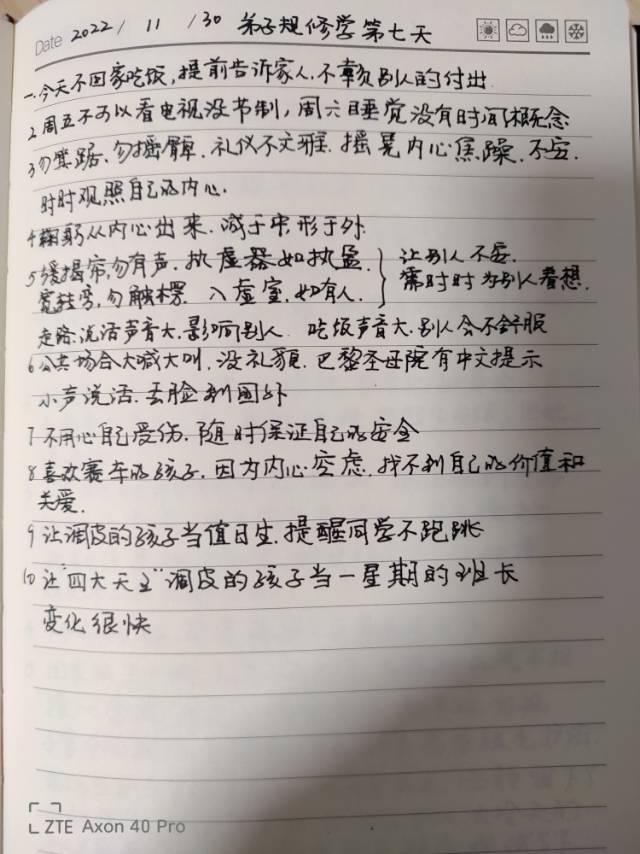 Date 2022/ 11 /30 弟子规修学第七天
一.今天不回家吃饭,提前告诉家人.不辜负别人的付出
2 周五不可以看电视没节制,周六日睡觉没有时间概念
3 勿箕踞.勿摇髀.礼仪不文雅.摇晃内心焦躁.不安.
时时观照自己的内心.
4 鞠躬从内心出来.诚于中.形于外.
5 缓揭帘,勿有声.执虚器如执盈. 让别人不安.
宽转弯,勿触棱. 入虚室.如有人. 需时时为别人着想.
走路.说话声音大.影响别人 吃饭声音大.别人会不舒服
6 公共场合大喊大叫.没礼貌.巴黎圣母院有中文提示
小声说话.丢脸到国外
7 不用心自己受伤.随时保证自己的安全
8 喜欢赛车的孩子.因为内心空虑.找不到自己的价值和
关爱.
9 让调皮的孩子当值日生.提醒同学不跑跳
10 让"四大天王"调皮的孩子当一星期的班长
变化很快
ZTE Axon 40 Pro